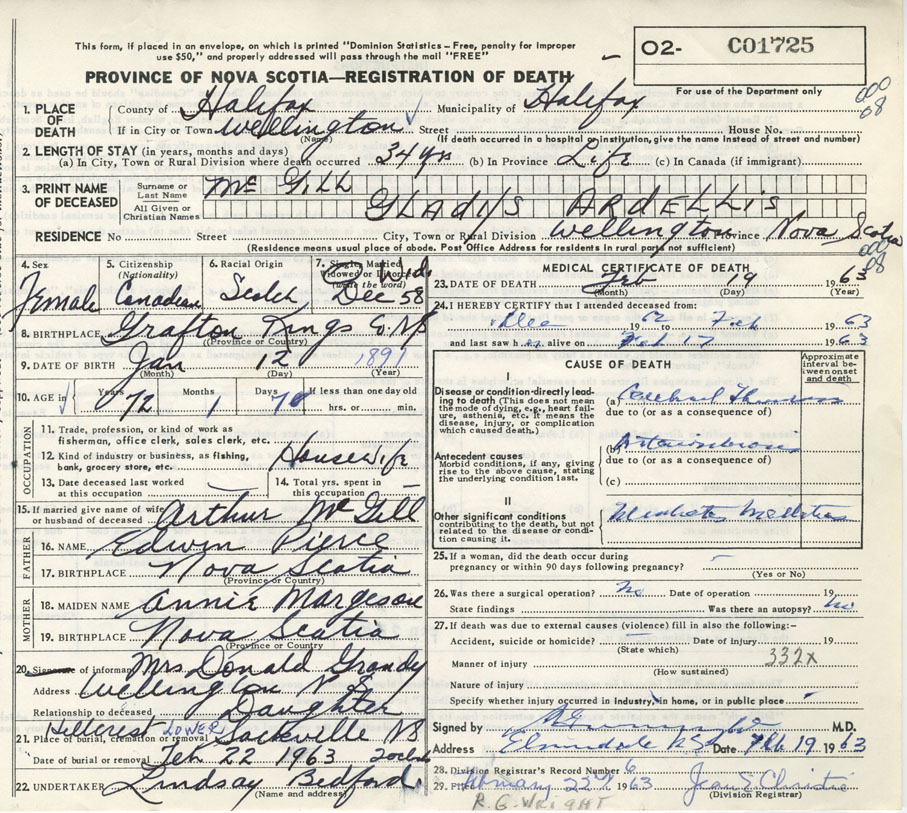 This form, if placed in an envelope, on which is printed "Dominion Statistics – Free, penalty for improper
use $50," and properly addressed will pass through the mail "FREE"
O2- C01725
PROVINCE OF NOVA SCOTIA—REGISTRATION OF DEATH
For use of the Department only
000
08
1. PLACE OF DEATH
County of Halifax Municipality of Halifax
If in City or Town Wellington Street House No.
(Name) (If death occurred in a hospital or institution, give the name instead of street and number)
2. LENGTH OF STAY (in years, months and days)
(a) In City, Town or Rural Division where death occurred 34 yrs (b) In Province Life (c) In Canada (if immigrant)
3. PRINT NAME OF DECEASED
Surname or Last Name Mc GILL
All Given or Christian Names GLADYS ARDELLIS
RESIDENCE No Street City, Town or Rural Division Wellington Province Nova Scotia
(Residence means usual place of abode. Post Office Address for residents in rural parts not sufficient)
000
08
4. Sex Female
5. Citizenship (Nationality) Canadian
6. Racial Origin Scotch
7. Single, Married, Widowed or Divorced (write the word) Wid Dec 58
8. BIRTHPLACE Grafton Kings Co. N.S
(Province or Country)
9. DATE OF BIRTH Jan 12 1891
(Month) (Day) (Year)
10. AGE in Years 72 Months 1 Days 7 If less than one day old
hrs. or min.
OCCUPATION
11. Trade, profession, or kind of work as fisherman, office clerk, sales clerk, etc.
12. Kind of industry or business, as fishing, bank, grocery store, etc. Housewife
13. Date deceased last worked at this occupation
14. Total yrs. spent in this occupation –
15. If married give name of wife or husband of deceased Arthur McGill
FATHER
16. NAME Edwin Pierce
17. BIRTHPLACE Nova Scotia
(Province or Country)
MOTHER
18. MAIDEN NAME Annie Margeson
19. BIRTHPLACE Nova Scotia
(Province or Country)
20. Signature of informant Mrs Donald Grandy
Address Wellington N S
Relationship to deceased Daughter
21. Place of burial, cremation or removal Hillcrest LOWER Sackville NS
Date of burial or removal Feb 22 1963
22. UNDERTAKER Lindsay Bedford
(Name and address)
MEDICAL CERTIFICATE OF DEATH
23. DATE OF DEATH Feb 19 1963
(Month) (Day) (Year)
24. I HEREBY CERTIFY that I attended deceased from:
Dec 1962 to Feb 1963
and last saw her alive on Feb 17 1963
CAUSE OF DEATH
Approximate interval between onset and death
I
Disease or condition directly leading to death (This does not mean the mode of dying, e.g., heart failure, asthenia, etc. It means the disease, injury, or complication which caused death.)
(a) Cerebral Thrombosis
due to (or as a consequence of)
Antecedent causes
Morbid conditions, if any, giving rise to the above cause, stating the underlying condition last.
(b)
due to (or as a consequence of)
(c)
II
Other significant conditions
contributing to the death, but not related to the disease or condition causing it.
Diabetes Mellitus
25. If a woman, did the death occur during
pregnancy or within 90 days following pregnancy? –
(Yes or No)
26. Was there a surgical operation? No Date of operation 19
State findings Was there an autopsy? No
27. If death was due to external causes (violence) fill in also the following:–
Accident, suicide or homicide? – Date of injury 19
(State which)
Manner of injury 332X
(How sustained)
Nature of injury
Specify whether injury occurred in industry, in home, or in public place
Signed by M.D.
Address Elmsdale N.S Date Feb 19 1963
28. Division Registrar's Record Number 6
29. Filed February 22nd 1963 Jean E Christie
(Division Registrar)
R.G. WRIGHT